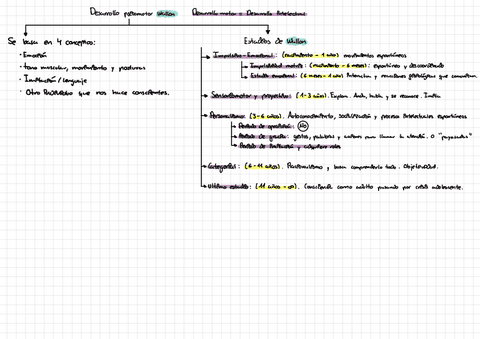 Desarrollo psicomotor Wallon Desarrollo motor = Desarrollo Intelectual
Se basa en 4 conceptos:
· Emoción
· tono muscular, movimiento y posturas
· Imitación/Lenguaje
· Otro que nos hace conscientes.
Estadios de Wallon
Impulsivo - Emocional: (nacimiento - 1 año) movimientos espontáneos
Impulsividad motriz: (nacimiento - 6 meses): espontáneo y descontrolado
Estadio emocional: (6 meses - 1 año) y reacciones fisiológicas que
Sensoriomotor y proyectivo: (1-3 años). Explora. Anda, habla y se reconoce. Imita
Personalismo: (3-6 años). Autoconocimiento, socialización y procesos intelectuales espontáneos
Periodo de oposición: No
Periodo de gracia: gestos, palabras y para llamar la atención. O "payasadas"
Periodo de imitación y roles
Categorial: (6-11 años). y busca comprenderlo todo. Objetividad.
Último estadio: (11 años - ∞). como adulto pasando por crisis adolescente.